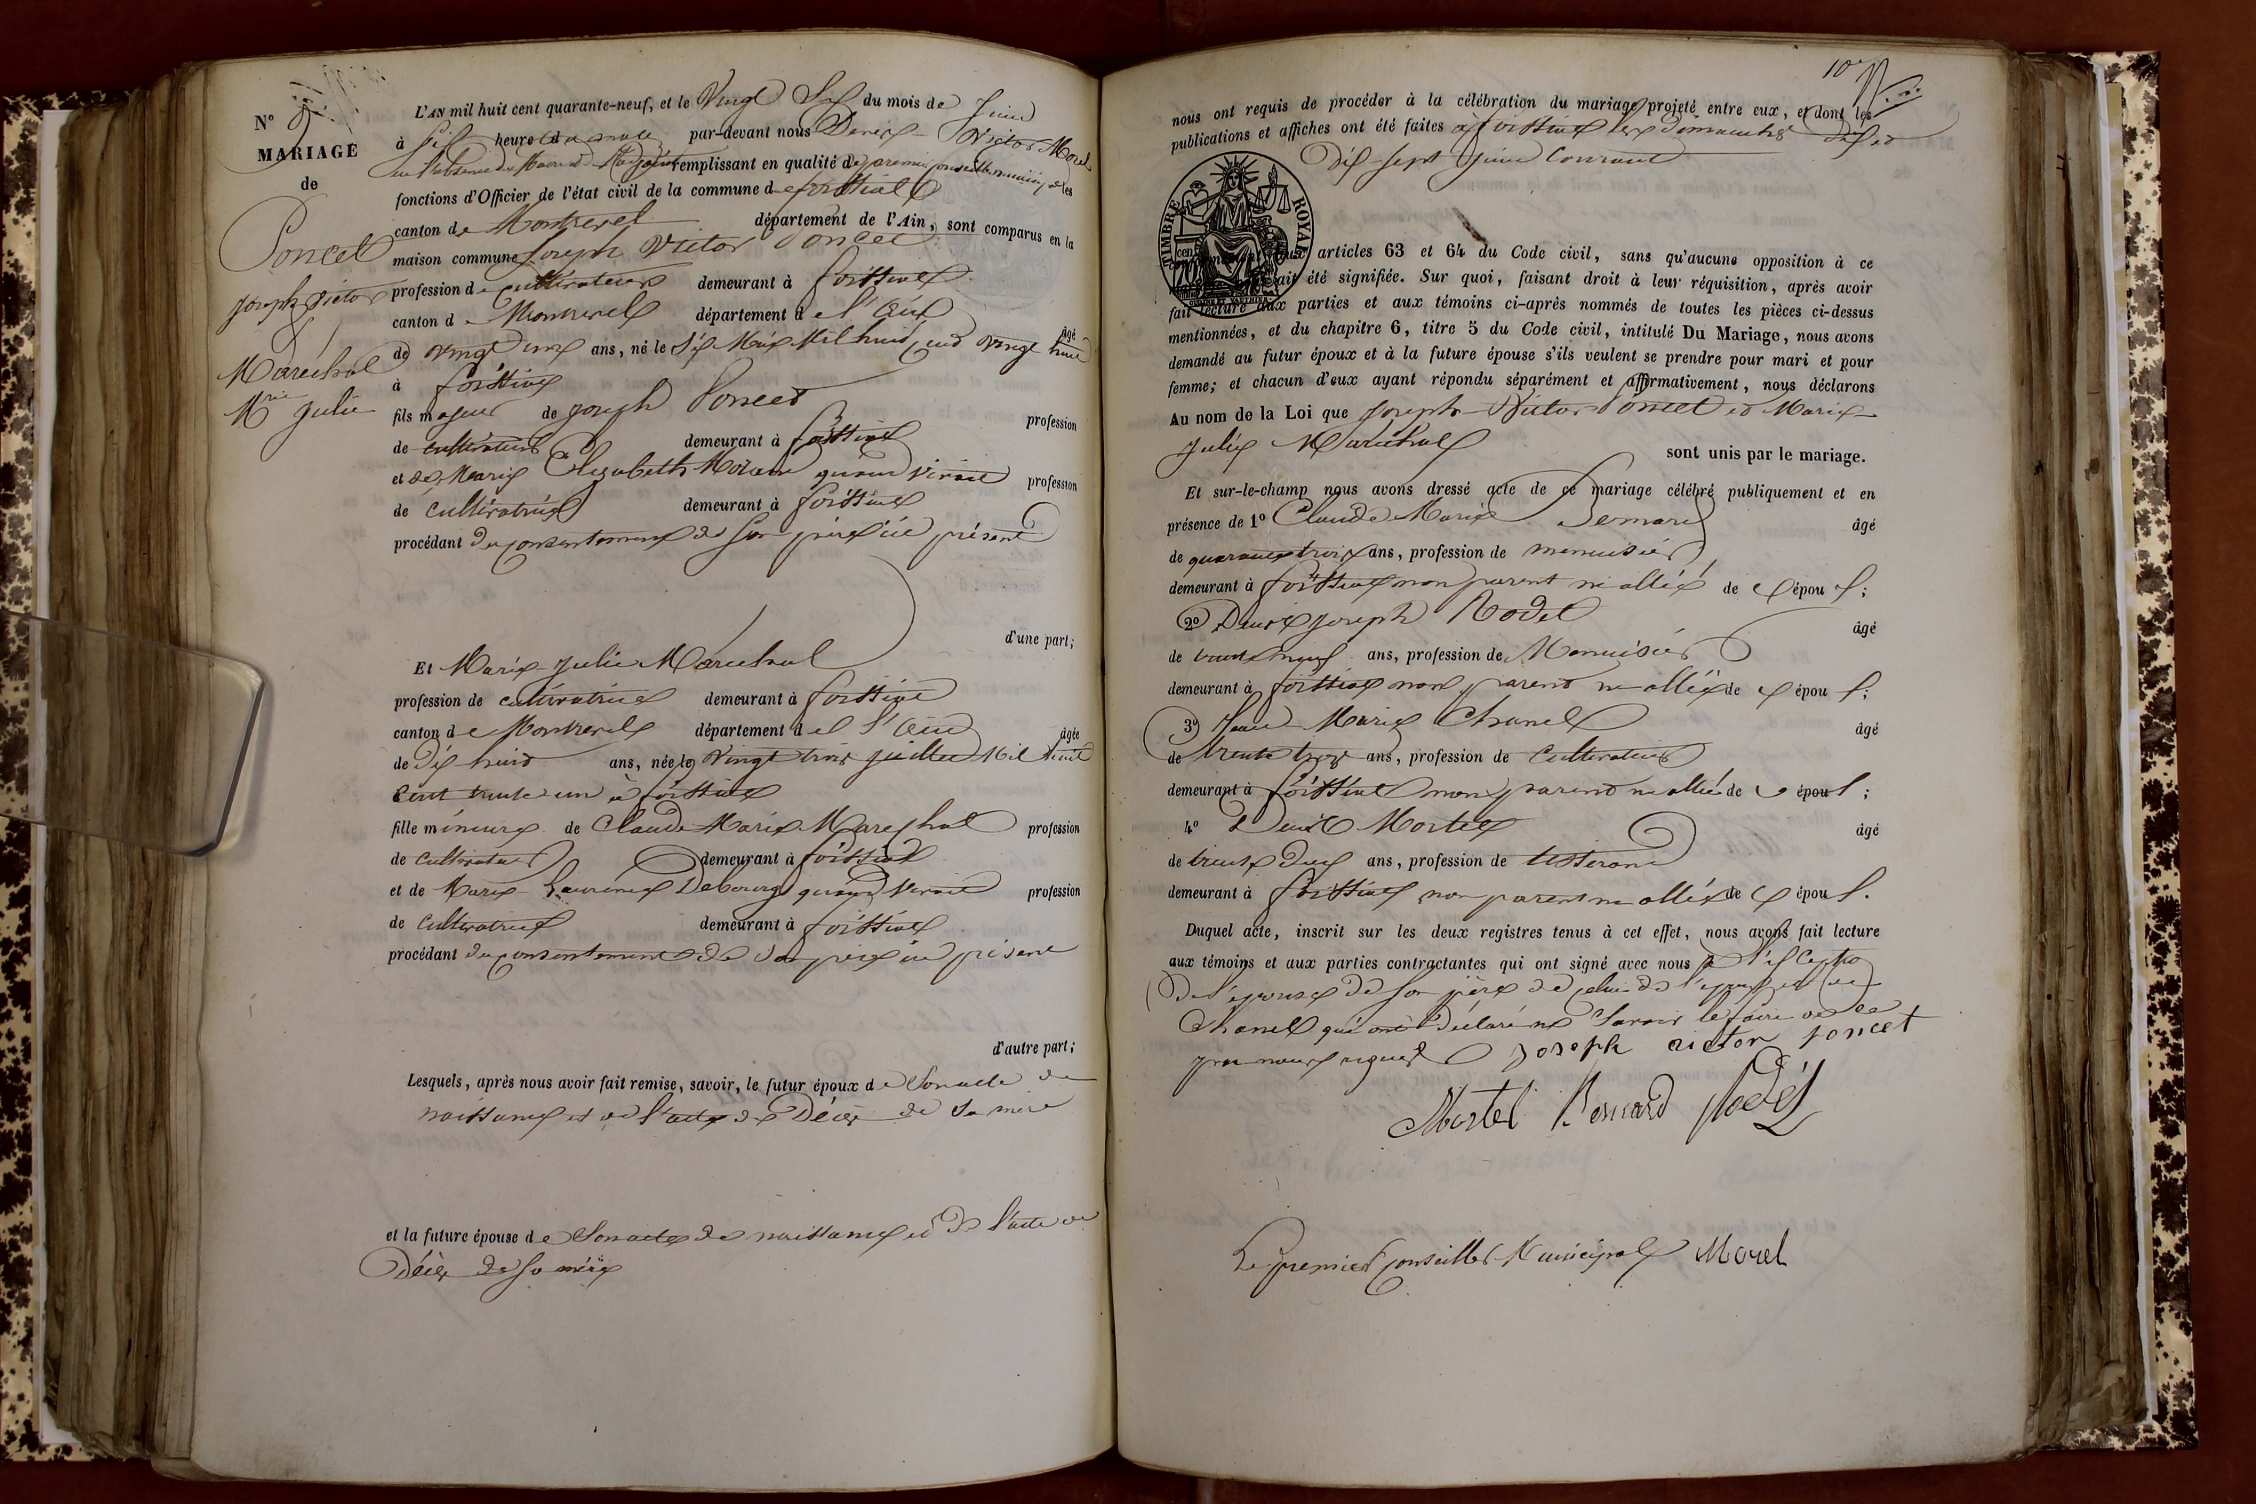 N° 8
MARIAGE
de
Poncet
Joseph Victor
&
Marechal
Mrie Julie
L'AN mil huit cent quarante-neuf, et le Vingt Six du mois de Juin
à Six heure du matin par-devant nous Denis Victor Morel
en l'absence du Maire et de l'adjoint remplissant en qualité de premier conseiller municipal les
fonctions d'Officier de l'état civil de la commune de foissiat
canton de Montrevel département de l'Ain, sont comparus en la
maison commune Joseph Victor Poncet
profession de cultivateur demeurant à foissiat
canton de Montrevel département de l'ain âgé
de vingt un ans, né le Six Mai Mil huit cent vingt huit
à foissiat
fils majeur de joseph Poncet profession
de cultivateur demeurant à foissiat
et de Marie Elizabeth Morand quand vivait profession
de cultivatrice demeurant à foissiat
procédant du consentement de son père ici présent
d'une part;
Et Marie Julie Marechal
profession de cultivatrice demeurant à foissiat
canton de Montrevel département de l'ain âgée
de dix huit ans, née le vingt trois juillet Mil huit
cent trente un à foissiat
fille mineure de Claude Marie Marechal profession
de cultivateur demeurant à foissiat
et de Marie Laurence Debourg quand vivait profession
de cultivatrice demeurant à foissiat
procédant du consentement de son père ici présent
d'autre part;
Lesquels, après nous avoir fait remise, savoir, le futur époux de son acte de
naissance et de l'acte de Décès de sa mère
et la future épouse de son acte de naissance et de l'acte de
Décès de sa mère
10
nous ont requis de procéder à la célébration du mariage projeté entre eux, et dont les
publications et affiches ont été faites à foissiat les dimanches dix et
Dix-sept juin courant
TIMBRE ROYAL
articles 63 et 64 du Code civil, sans qu'aucune opposition à ce
ait été signifiée. Sur quoi, faisant droit à leur réquisition, après avoir
fait lecture aux parties et aux témoins ci-après nommés de toutes les pièces ci-dessus
mentionnées, et du chapitre 6, titre 5 du Code civil, intitulé Du Mariage, nous avons
demandé au futur époux et à la future épouse s'ils veulent se prendre pour mari et pour
femme; et chacun d'eux ayant répondu séparément et affirmativement, nous déclarons
Au nom de la Loi que Joseph Victor Poncet et Marie
Julie Maréchal sont unis par le mariage.
Et sur-le-champ nous avons dressé acte de ce mariage célébré publiquement et en
présence de 1° Claude Marie Bernard âgé
de quarante trois ans, profession de menuisier
demeurant à foissiat non parent ni allié de l'époux;
2° Denis Joseph Rodet âgé
de trente neuf ans, profession de Menuisier
demeurant à foissiat non parent ni allié de l'époux;
3° Jean Marie Chanel âgé
de trente trois ans, profession de cultivateur
demeurant à foissiat non parent ni allié de l'époux;
4° Denis Mortel âgé
de trente deux ans, profession de tisserand
demeurant à foissiat non parent ni allié de l'époux.
Duquel acte, inscrit sur les deux registres tenus à cet effet, nous avons fait lecture
aux témoins et aux parties contractantes qui ont signé avec nous à l'exception
de l'épouse de son père de celui de l'époux et de
Chanel qui ont déclaré ne savoir le faire de ce
par nous requis Joseph victor poncet
Mortel Bernard Rodet
Le premier Conseiller Municipal Morel